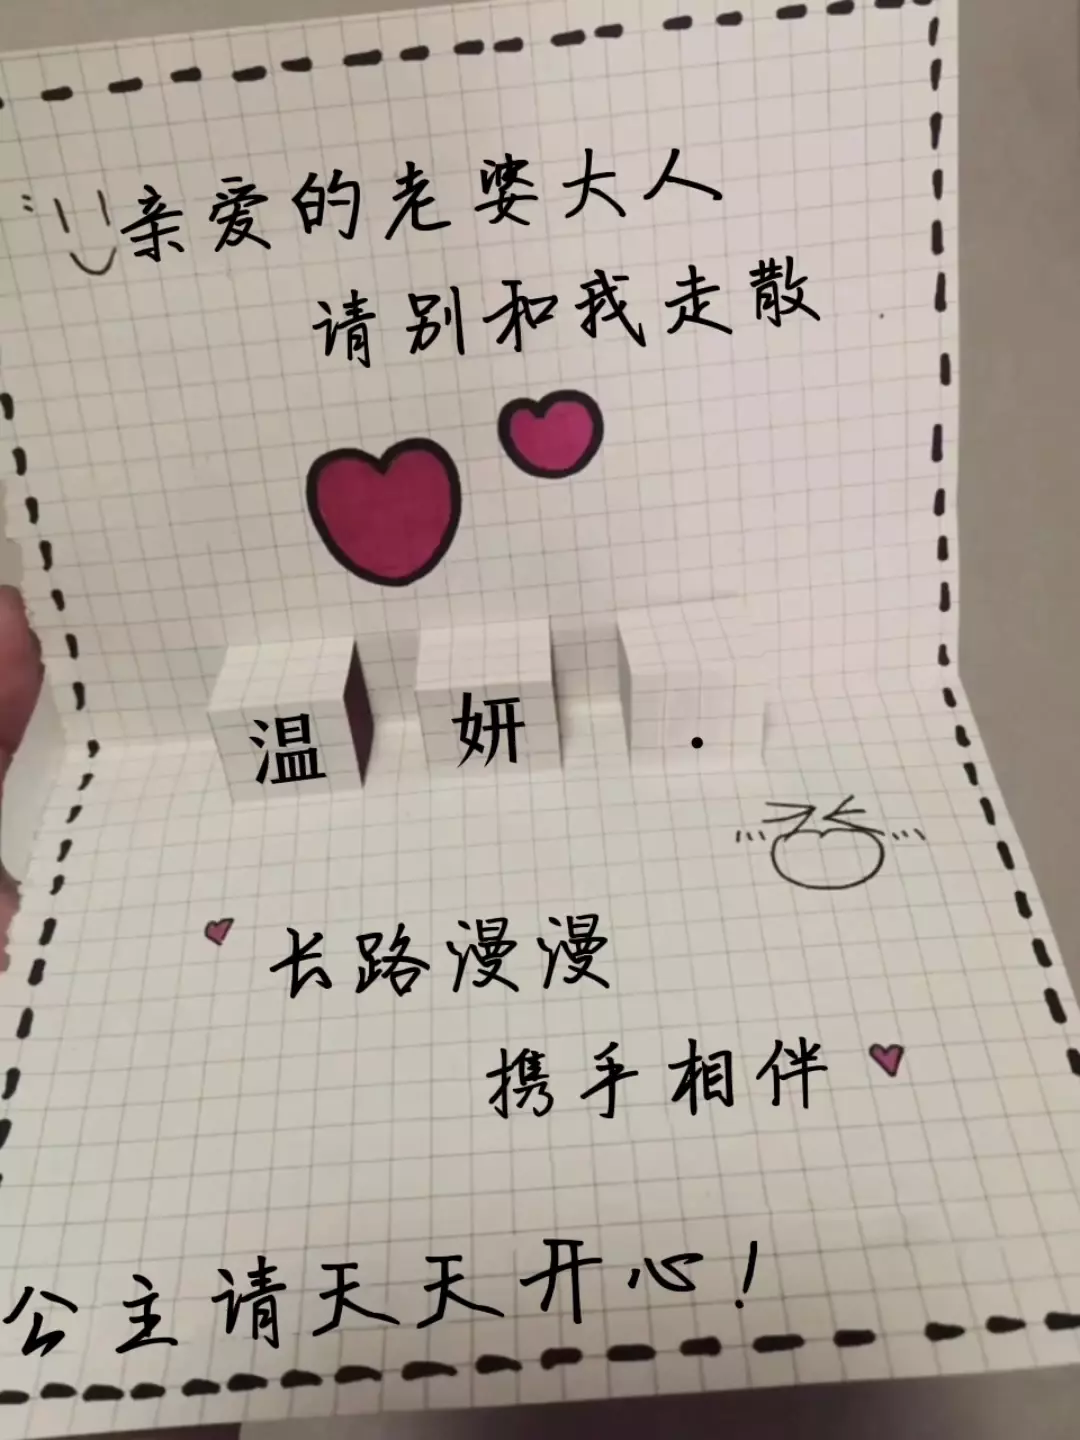 亲爱的老婆大人
请别和我走散
温妍.
长路漫漫
携手相伴
公主请天天开心!